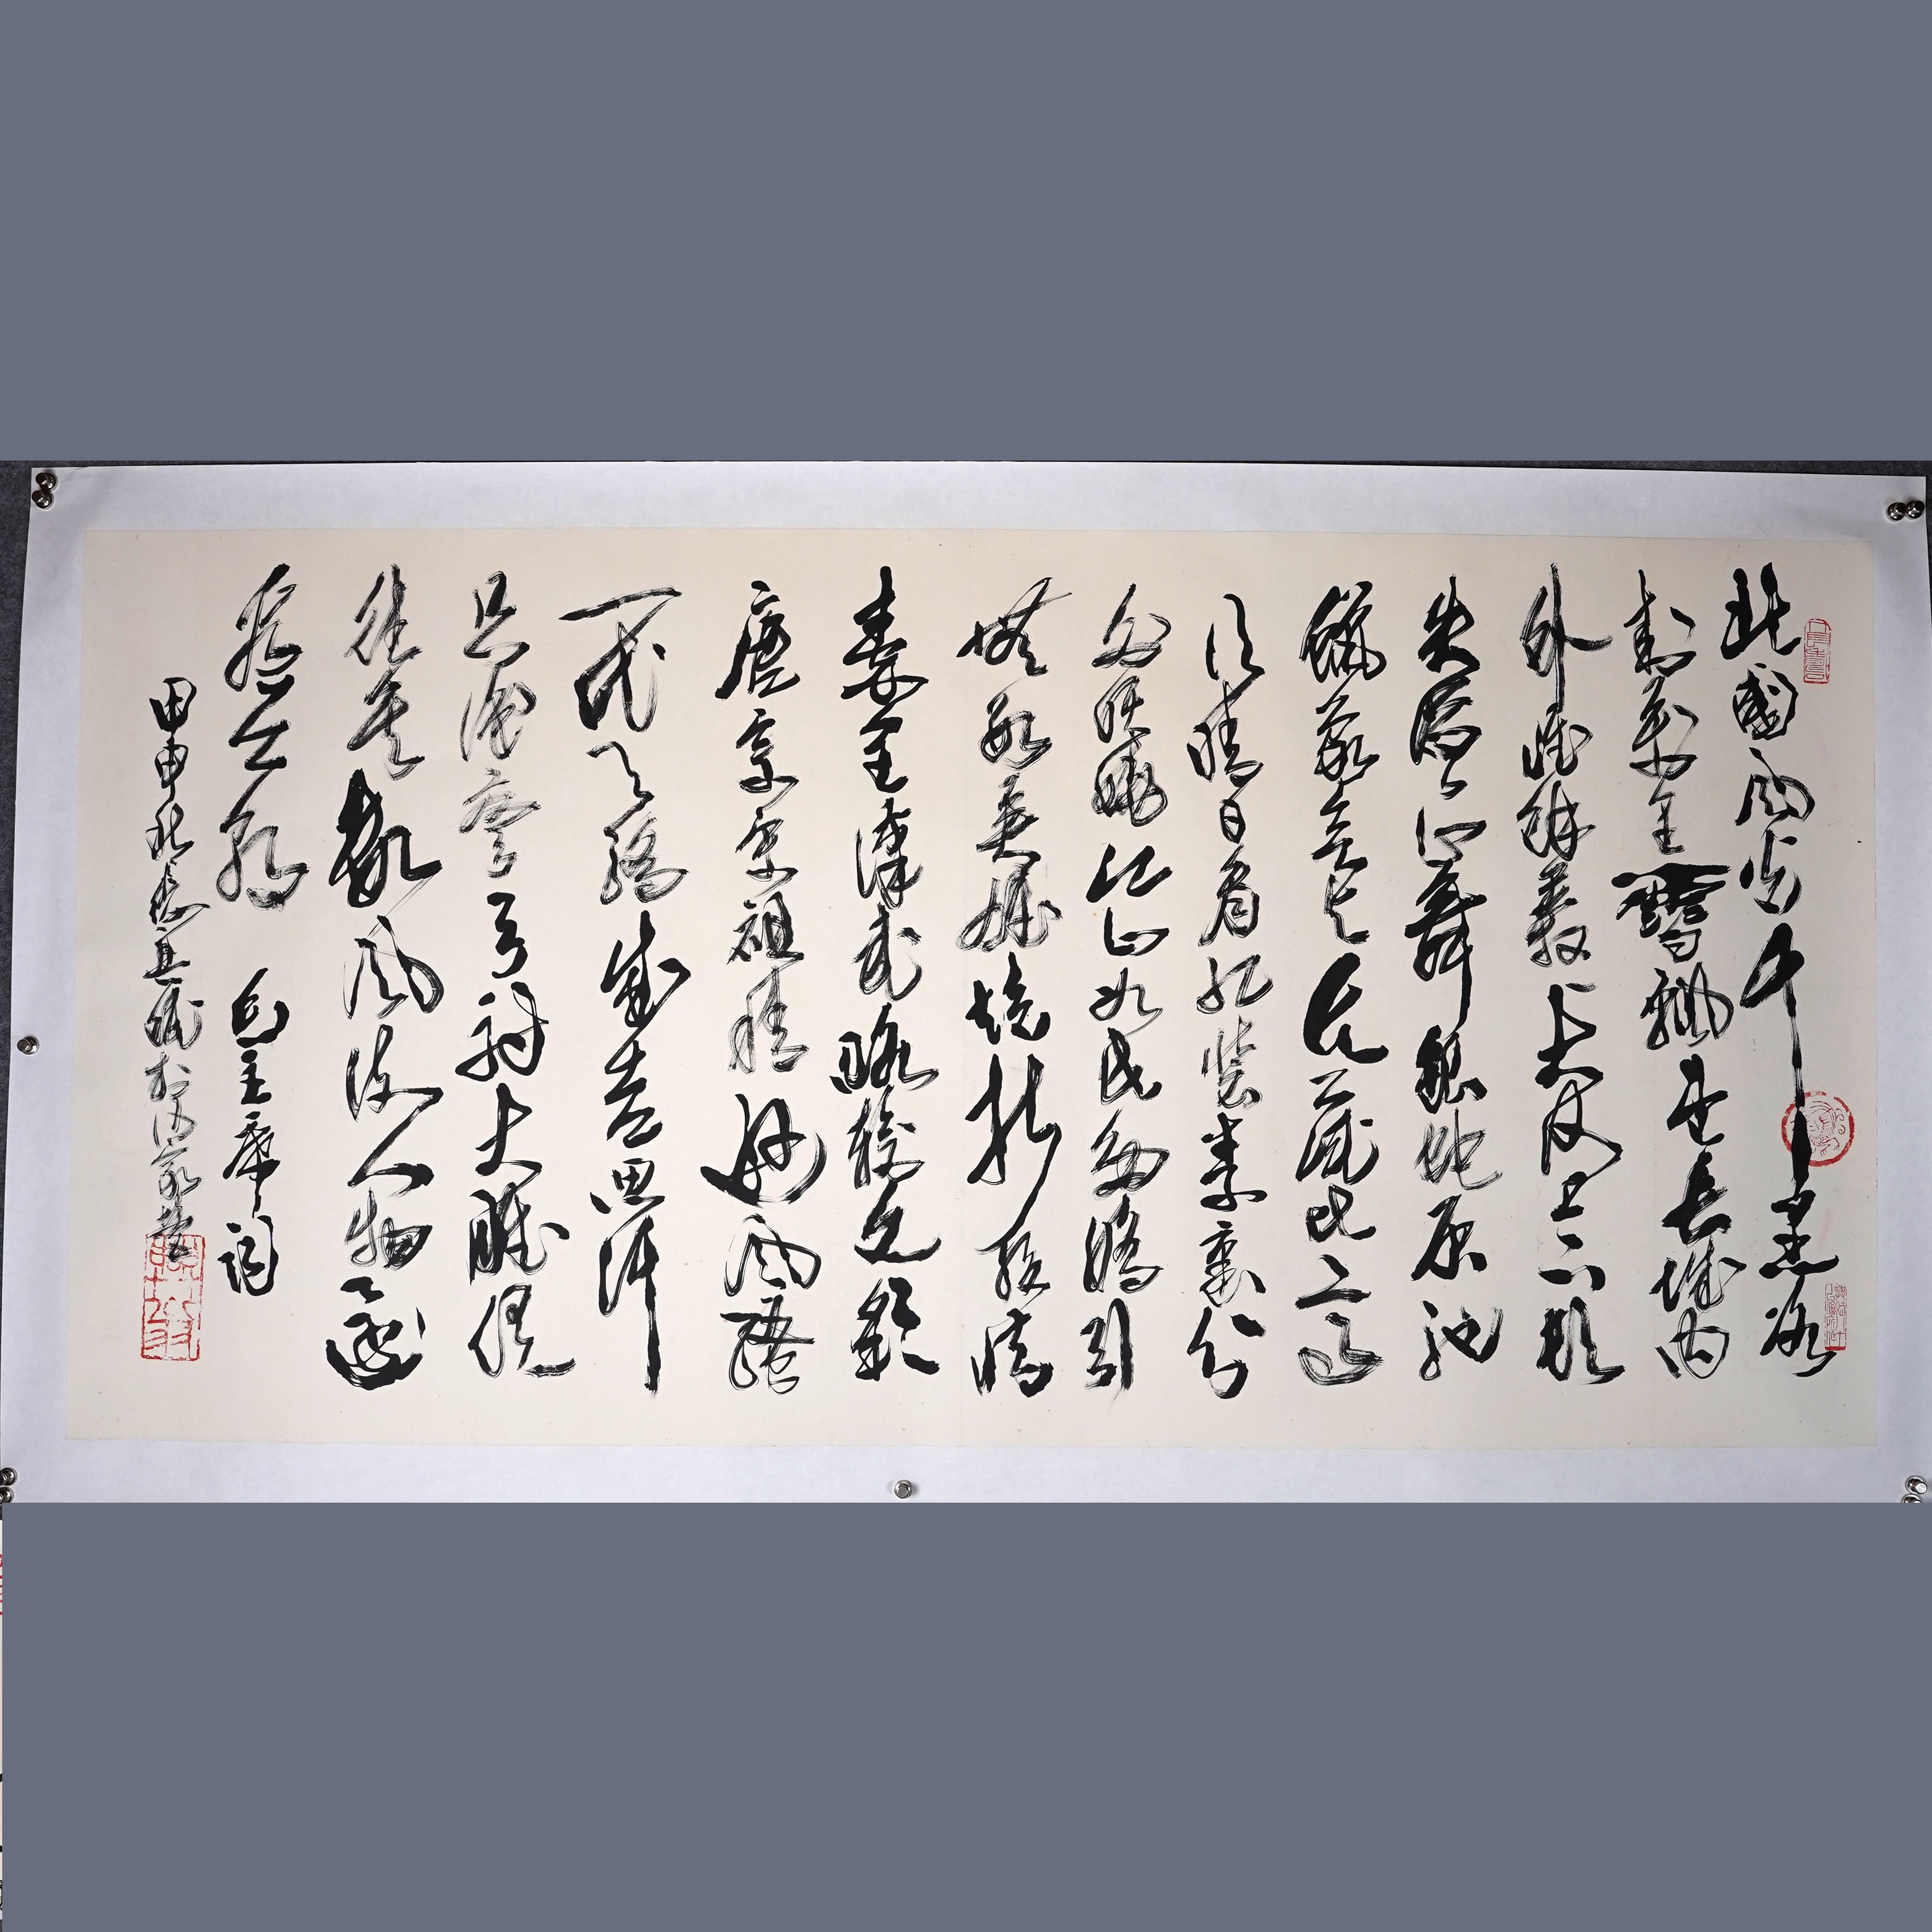 北國風光千里冰
封萬里雪飄望長城內
外惟餘莽莽大河上下頓
失滔滔山舞銀蛇原馳
蠟象欲與天公試比高
須晴日看紅裝素裹分
外妖嬈江山如此多嬌引
無數英雄競折腰惜
秦皇漢武略輸文彩
唐宗宋祖稍遜風騷
一代天驕成吉思汗
只識彎弓射大雕俱
往矣數風流人物還
看今朝 毛主席詞
甲申秋